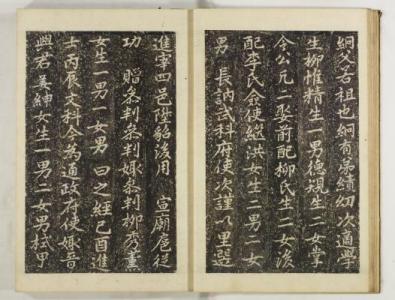 絅父若祖也絅有弟績幼次適學
生柳惟精生一男德規生二女掌
令公凡二娶前配柳氏生二女後
配李氏僉使繼洪女生二男一女
男長訥武科府使次謹以里選
進宰四邑陞紹後用宣廟扈從
功贈參判參判娵參判柳秀薰
女生一男一女男曰之經己酉進
士丙辰文科今為通政府使娵晉
與君姜紳女生一男二女男栻甲